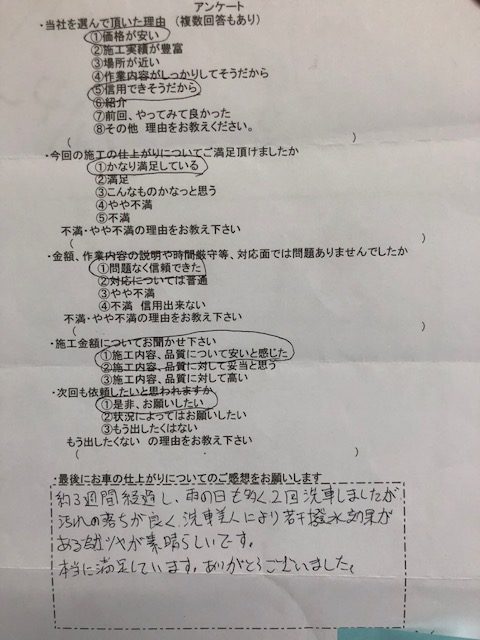 アンケート
・当社を選んで頂いた理由 (複数回答もあり)
①価格が安い
②施工実績が豊富
③場所が近い
④作業内容がしっかりしてそうだから
⑤信用できそうだから
⑥紹介
⑦前回、やってみて良かった
⑧その他 理由をお教えください。
( )
・今回の施工の仕上がりについてご満足頂けましたか
①かなり満足している
②満足
③こんなものかなっと思う
④やや不満
⑤不満
不満・やや不満の理由をお教え下さい
( )
・金額、作業内容の説明や時間厳守等、対応面では問題ありませんでしたか
①問題なく信頼できた
②対応については普通
③やや不満
④不満 信用出来ない
不満・やや不満の理由をお教え下さい
( )
・施工金額についてお聞かせ下さい
①施工内容、品質について安いと感じた
②施工内容、品質に対して妥当と思う
③施工内容、品質に対して高い
・次回も依頼したいと思われますか
①是非、お願いしたい
②状況によってはお願いしたい
③もう出したくはない
もう出したくない の理由をお教え下さい
( )
・最後にお車の仕上がりについてのご感想をお願いします
約3週間経過し、雨の日も多く2回洗車しましたが
汚れの落ちが良く、洗車美人により若干撥水効果が
ある為ツヤが素晴らしいです。
本当に満足しています。ありがとうございました。